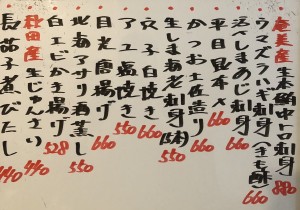 奄美産 生本鮪中トロ刺身 880
ウマズラハギ刺身(きも酢) 660
活〆しまあじ刺身 660
平目昆布〆 660
かつお土佐造り 660
生しまあ老刺身(隠) 550
穴子白焼き 660
アユ塩焼き 550
目光唐揚げ 660
北海アサリ酒蒸し 550
白エビかき揚げ 528
秋田産 生じゅんさい 440
長茄子煮びたし 440